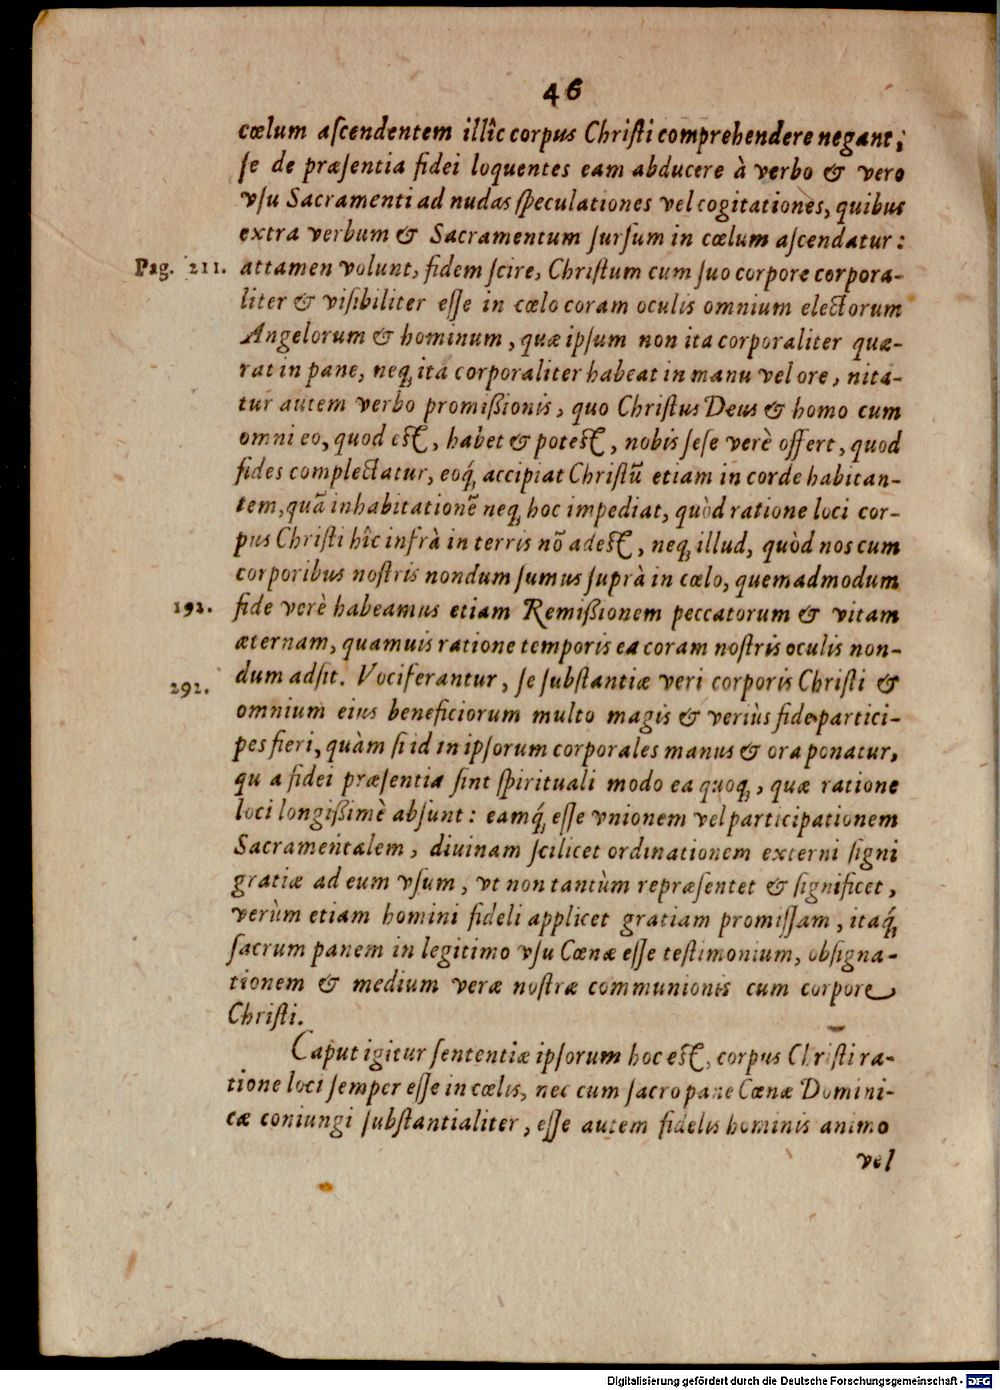 46
cœlum aſcendentem illîc corpus Chriſti comprehendere negant;
ſe de præſentia fidei loquentes eam abducere à verbo & vero
vſu Sacramenti ad nudas ſpeculationes vel cogitationes, quibus
extra verbum & Sacramentum ſurſum in cœlum aſcendatur:
Pag. 211. attamen volunt, fidem ſcire, Chriſtum cum ſuo corpore corpora-
liter & viſibiliter eſſe in cœlo coram oculis omnium electorum
Angelorum & hominum, quæ ipſum non ita corporaliter quæ-
rat in pane, neq́; ita corporaliter habeat in manu vel ore, nita-
tur autem verbo promißionis, quo Chriſtus Deus & homo cum
omni eo, quod eſt, habet & poteſt, nobis ſeſe verè offert, quod
fides complectatur, eoq́; accipiat Chriſtū etiam in corde habitan-
tem, quā inhabitationē neq; hoc impediat, quòd ratione loci cor-
pus Chriſti hîc infrà in terris nō adeſt, neq; illud, quòd nos cum
corporibus noſtris nondum ſumus ſuprà in cœlo, quemadmodum
192. fide verè habeamus etiam Remißionem peccatorum & vitam
æternam, quamuis ratione temporis ea coram noſtris oculis non-
292. dum adſit. Vociferantur, ſe ſubſtantiæ veri corporis Chriſti &
omnium eius beneficiorum multo magis & veriùs fide partici-
pes fieri, quàm ſi id in ipſorum corporales manus & ora ponatur,
qu a fidei præſentia ſint ſpirituali modo ea quoq;, quæ ratione
loci longißimè abſunt: eamq́; eſſe vnionem vel participationem
Sacramentalem, diuinam ſcilicet ordinationem externi ſigni
gratiæ ad eum vſum, vt non tantùm repræſentet & ſignificet,
verùm etiam homini fideli applicet gratiam promiſſam, itaq́;
ſacrum panem in legitimo vſu Cœnæ eſſe teſtimonium, obſigna-
tionem & medium veræ noſtræ communionis cum corpore
Chriſti.
Caput igitur ſententiæ ipſorum hoc eſt, corpus Chriſti ra-
tione loci ſemper eſſe in cœlis, nec cum ſacro pane Cœnæ Domini-
cæ coniungi ſubſtantialiter, eſſe autem fidelis hominis animo
vel
Digitalisierung gefördert durch die Deutsche Forschungsgemeinschaft - DFG